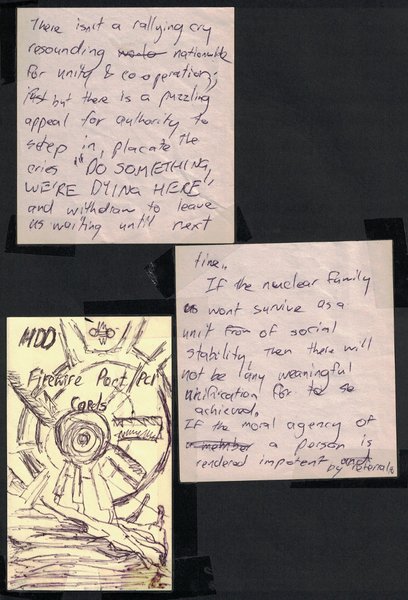 There isn't a rallying cry
resounding nationwide
for unity & cooperation;
but there is a puzzling
appeal for authority to
step in, placate the
cries "DO SOMETHING,
WE'RE DYING HERE",
and withdraw to leave
us waiting until next
time..
If the nuclear family
wont survive as a
unit of social
stability, Then there will
not be any meaningful
unification for to be
achieved.
If the moral agency of
a person is
rendered impotent
by referral
HDD
Firewire Port/PCI
Cards